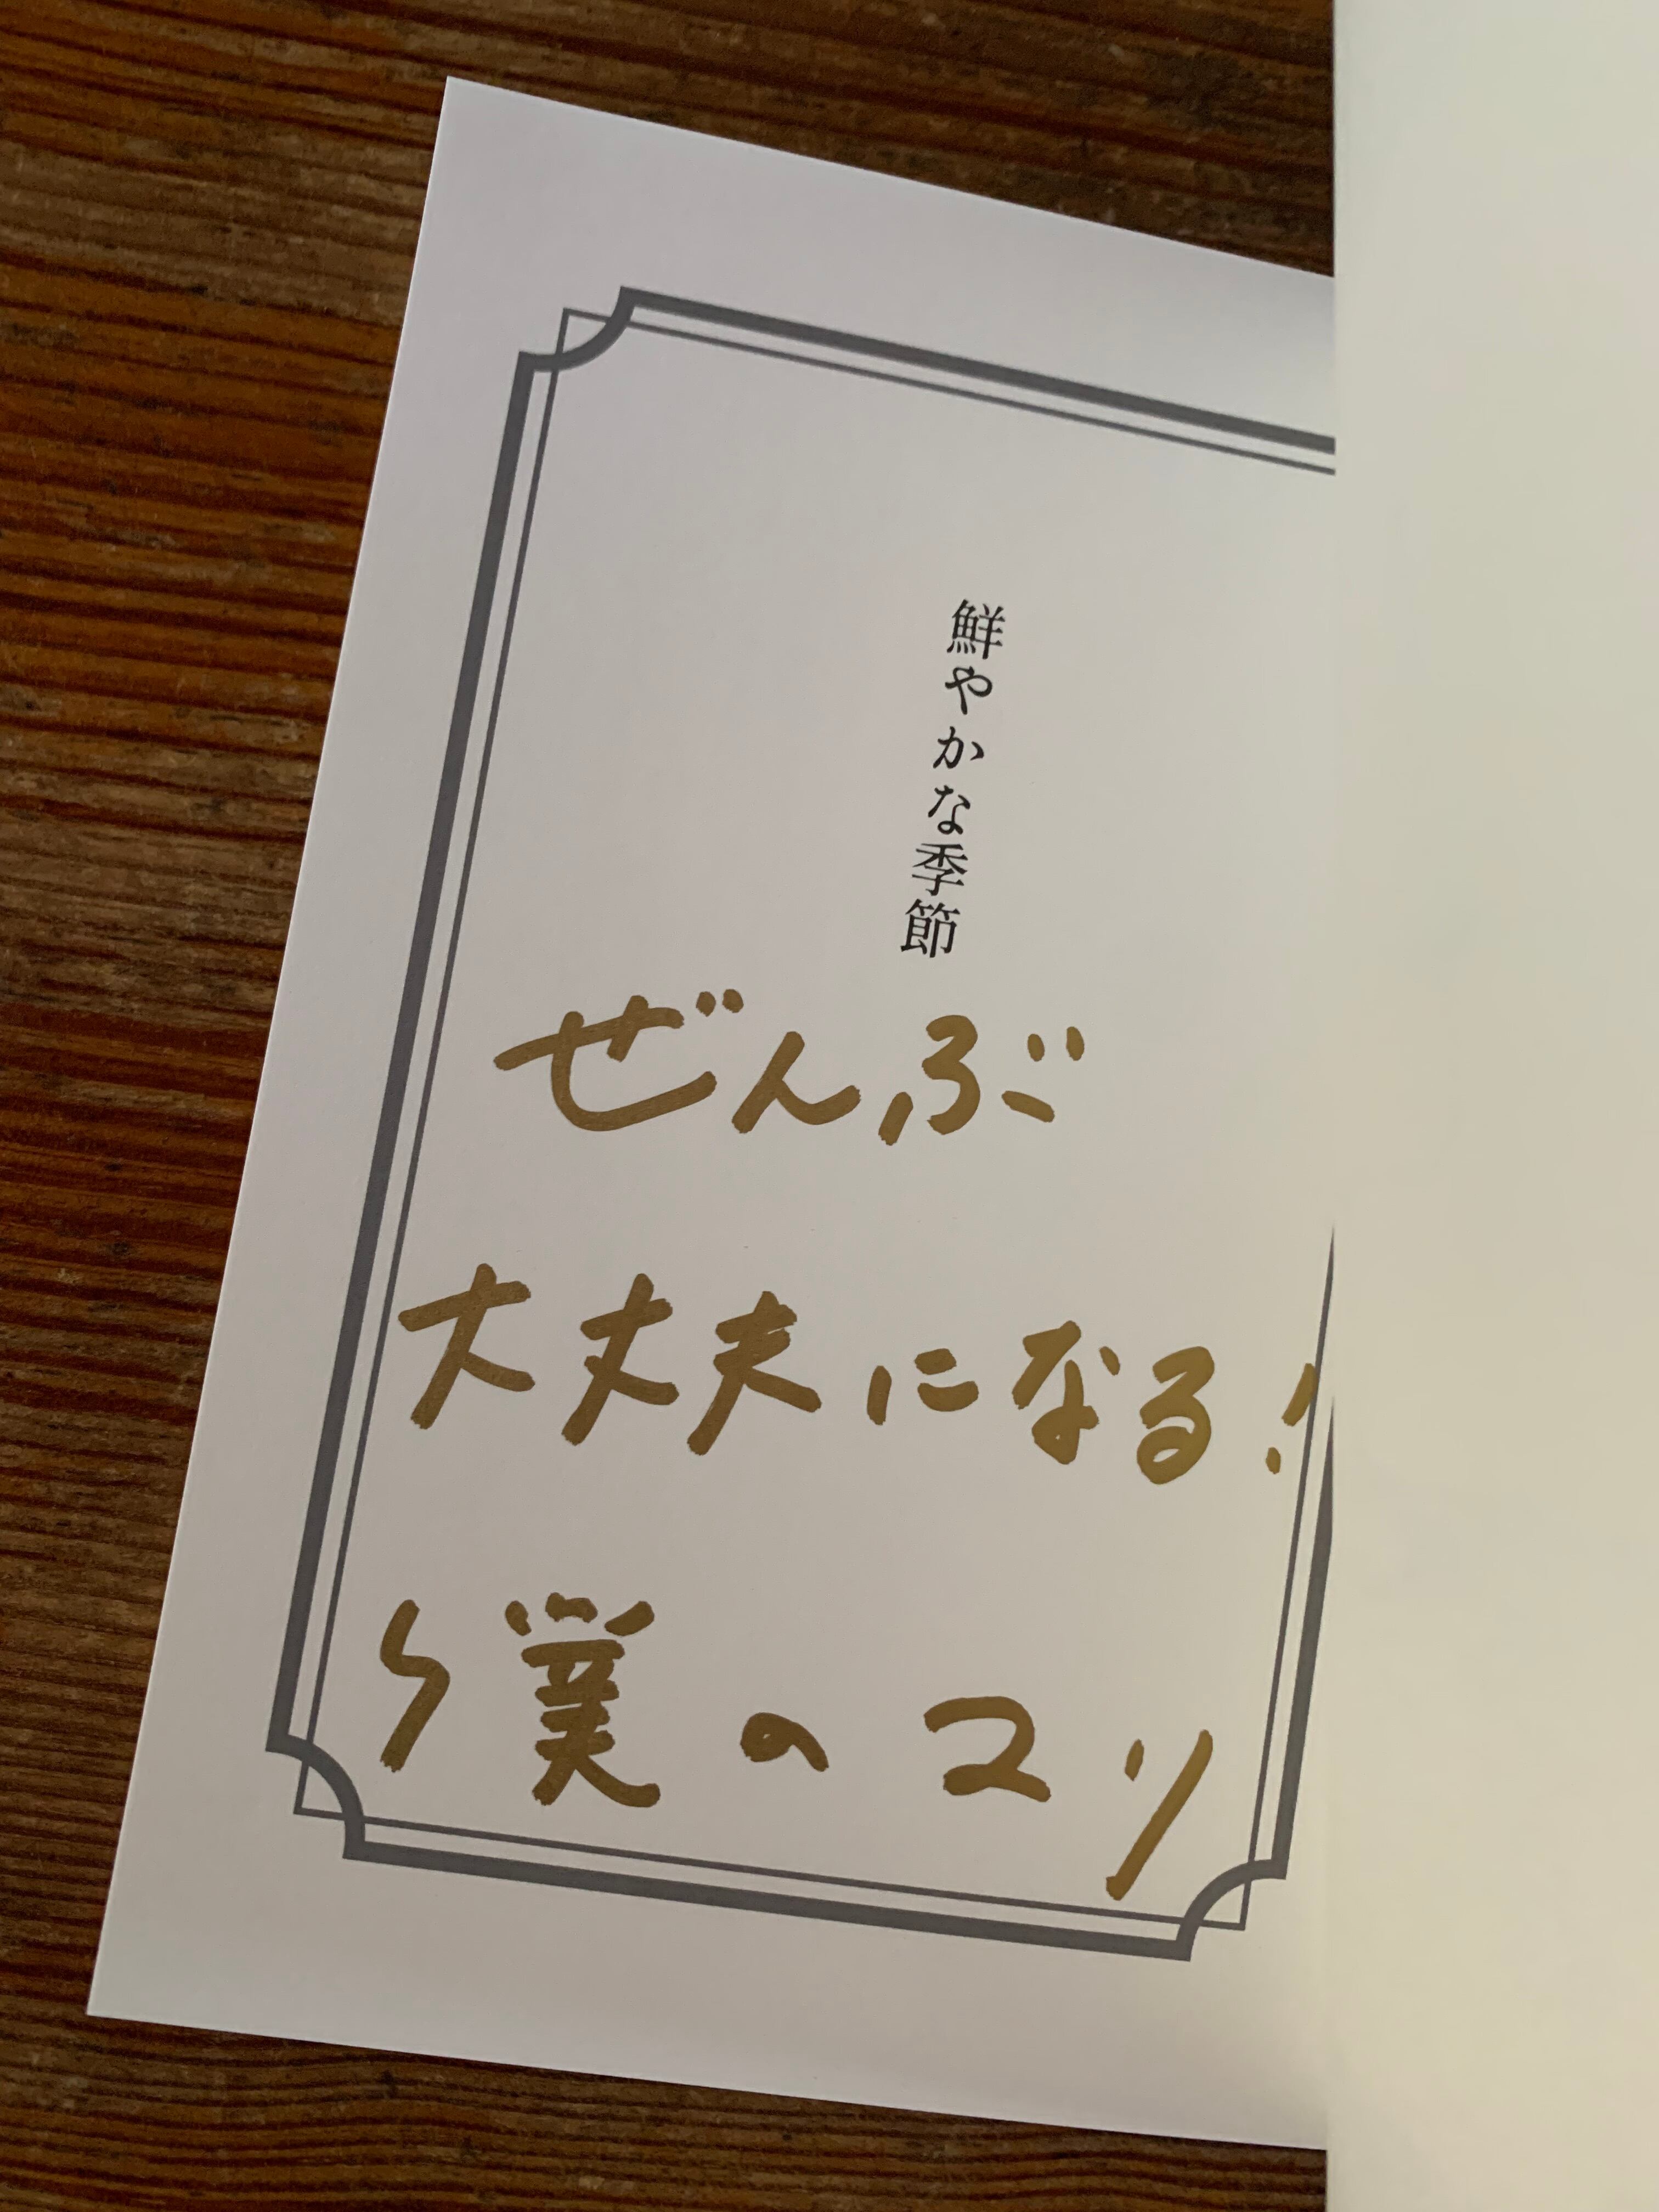 鮮やかな季節
ぜんぶ
大丈夫になる!
僕のマリ